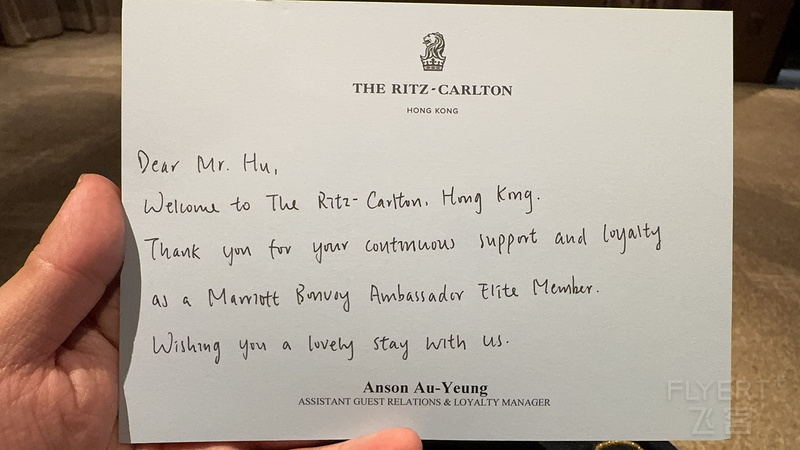 THE RITZ-CARLTON
HONG KONG
Dear Mr. Hu,
Welcome to The Ritz-Carlton, Hong Kong.
Thank you for your continuous support and loyalty
as a Marriott Bonvoy Ambassador Elite Member.
Wishing you a lovely stay with us.
Anson Au-Yeung
ASSISTANT GUEST RELATIONS & LOYALTY MANAGER
FLYERT
飞客